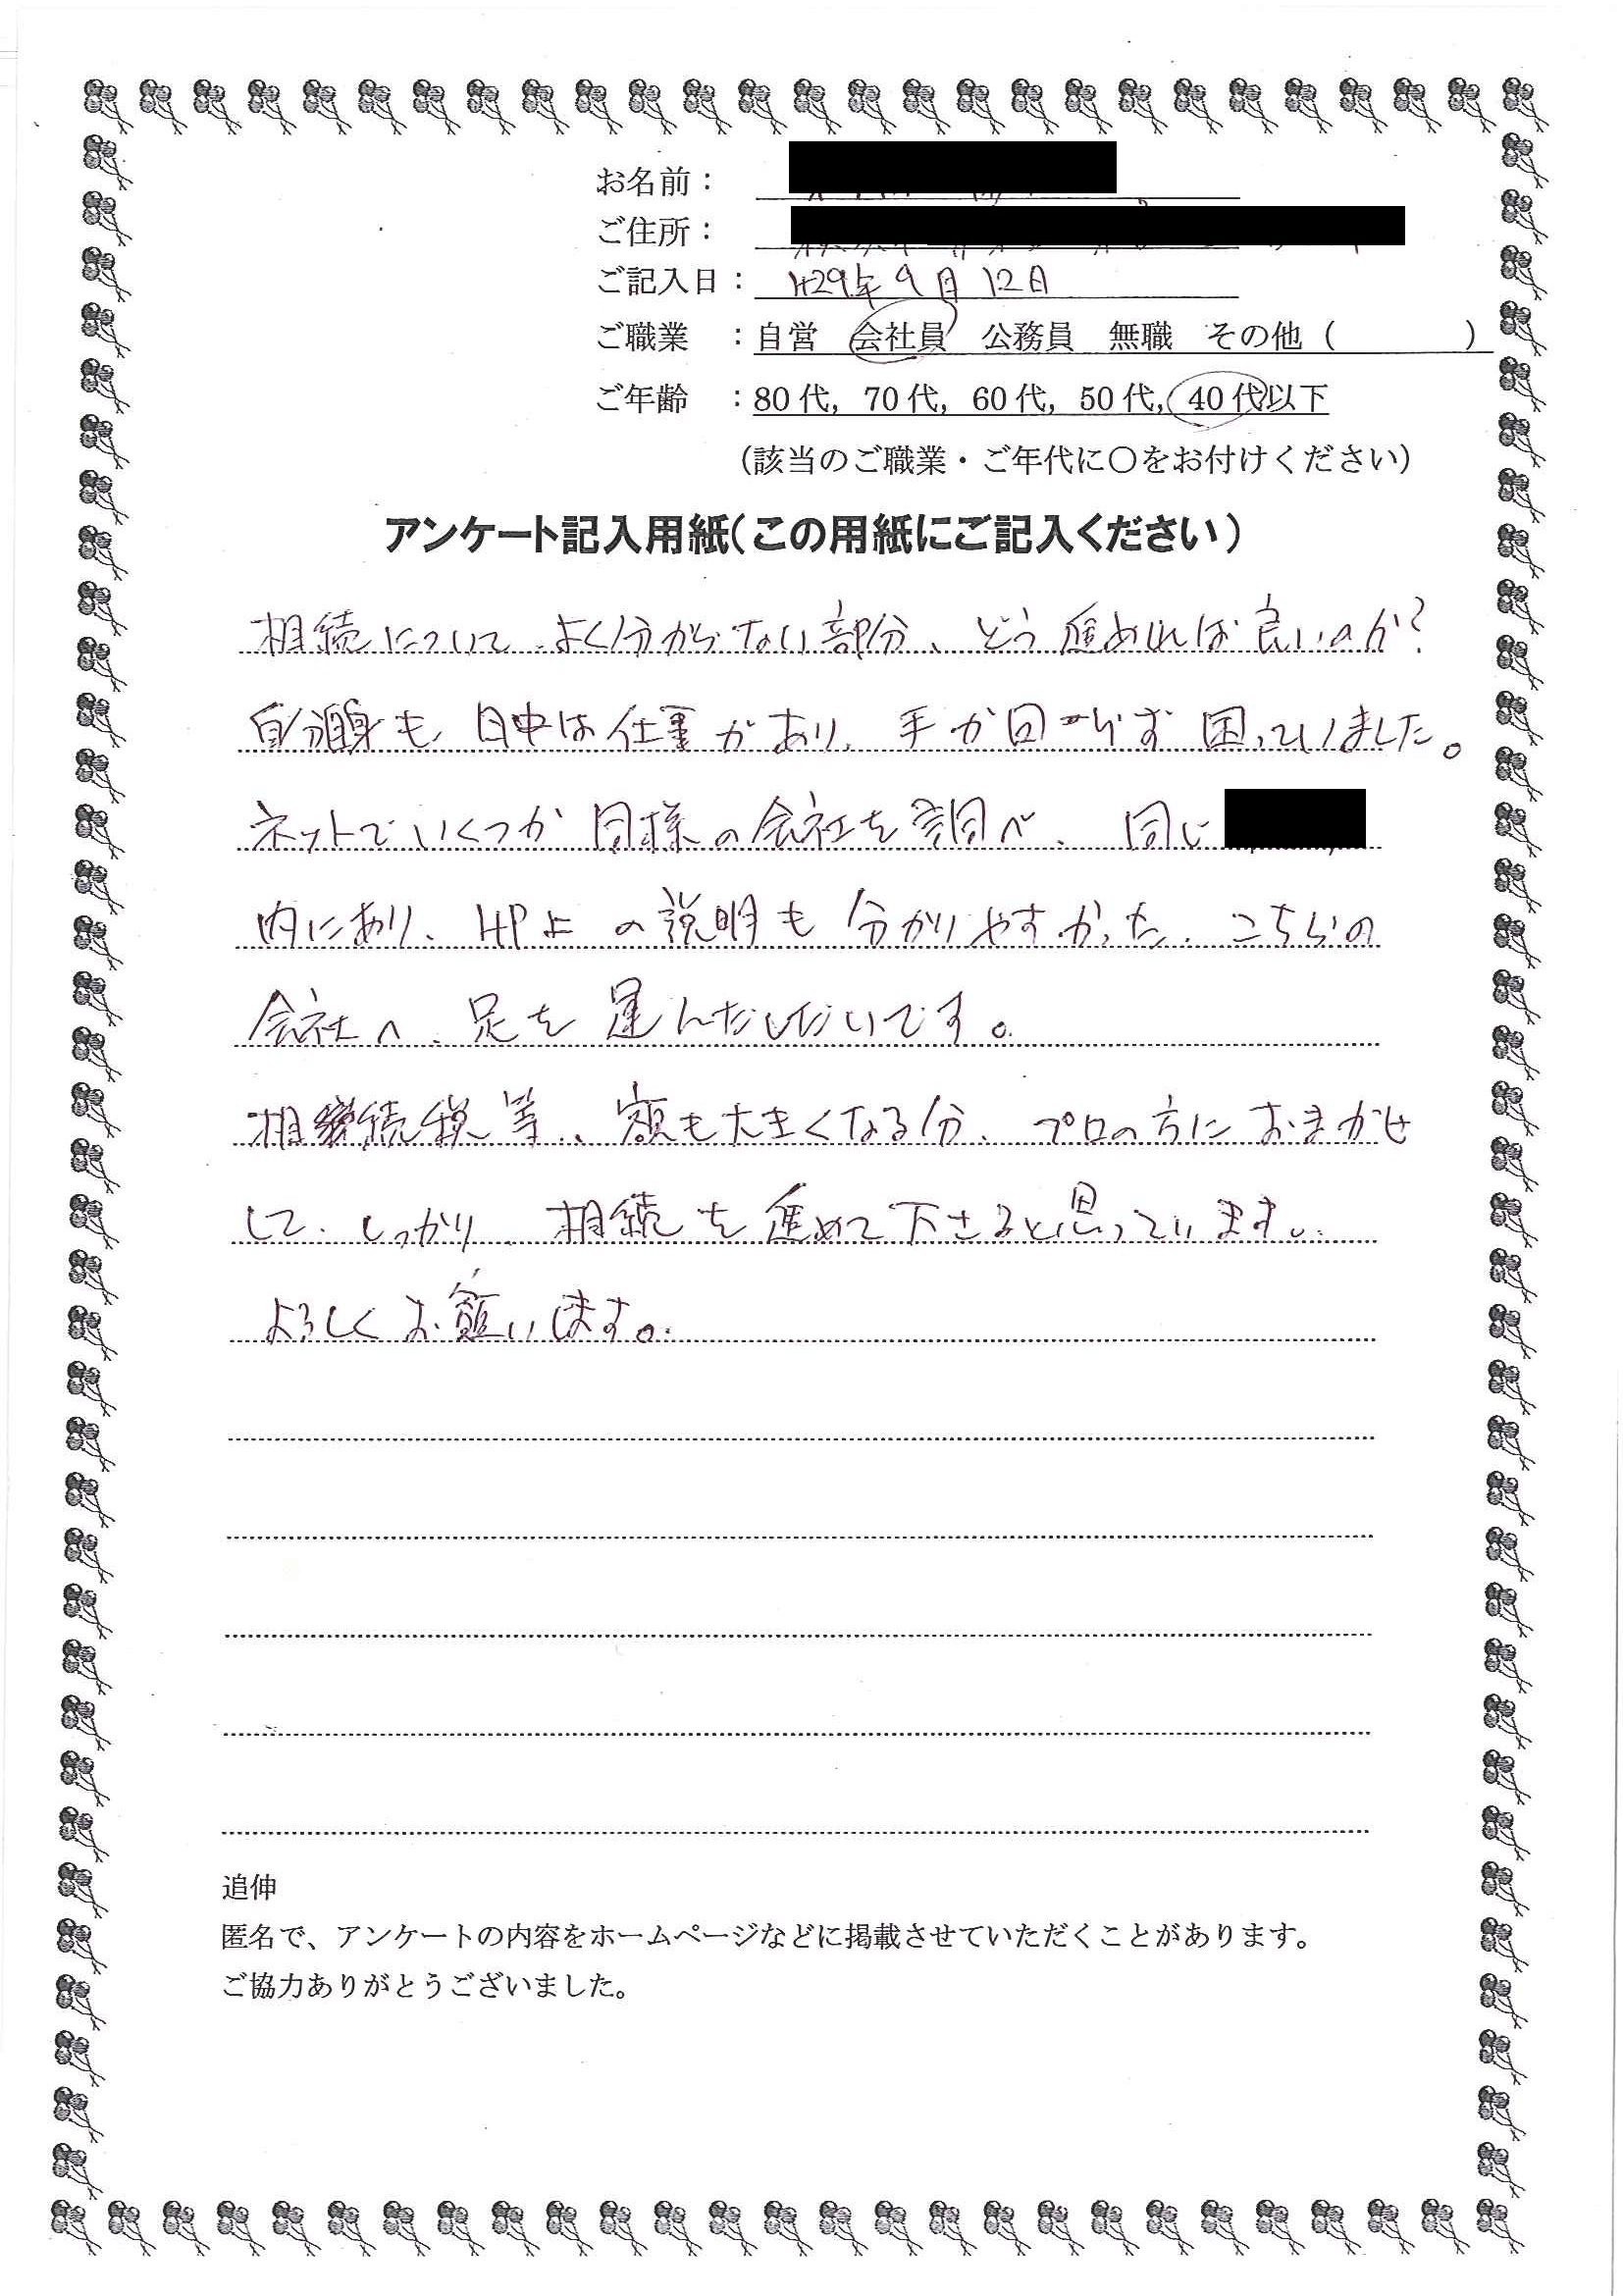 お名前：
ご住所：
ご記入日：H29年9月12日
ご職業　：自営　会社員　公務員　無職　その他（　　　　）
ご年齢　：80代，70代，60代，50代，40代以下
（該当のご職業・ご年代に〇をお付けください）
アンケート記入用紙（この用紙にご記入ください）
相続について、よく分からない部分、どう進めれば良いのか？
自分自身も、日中は仕事があり、手が回らず困っていました。
ネットでいくつか同様の会社を調べ、同じ
内にあり、HP上の説明も分かりやすかった、こちらの
会社へ、足を運んだしだいです。
相続税等、額も大きくなる分、プロの方におまかせ
して、しっかり、相続を進めて下さると思っています。
よろしくお願いします。
追伸
匿名で、アンケートの内容をホームページなどに掲載させていただくことがあります。
ご協力ありがとうございました。